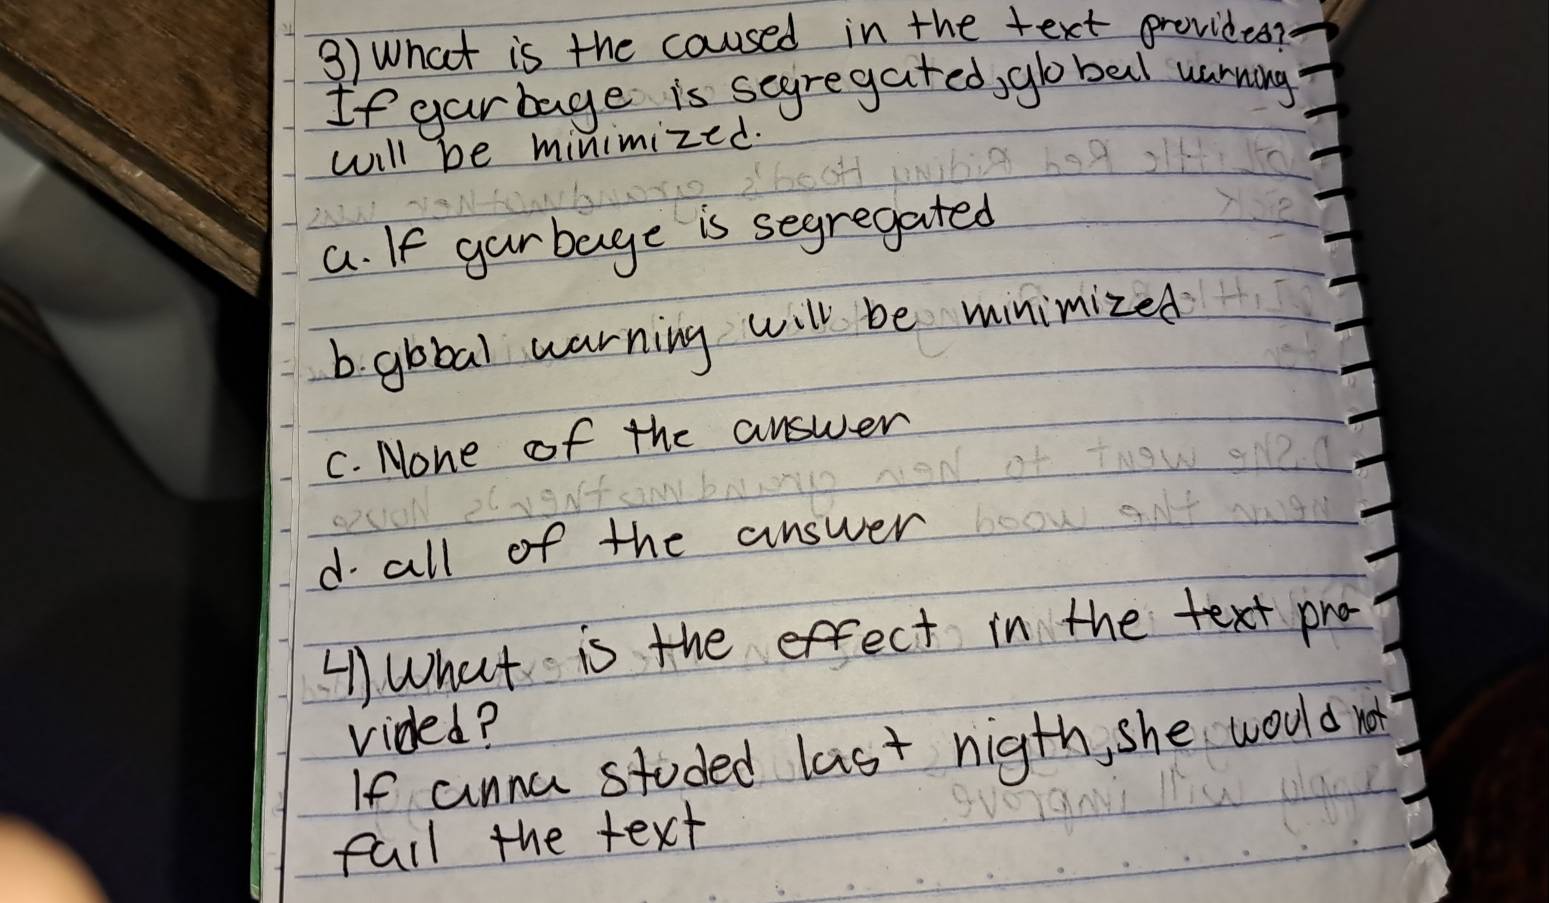 3) What is the caused in the text provides?
If garbage is segregated, global warning
will be minimized.
a. If garbage is segregated
b. global warning will be minimized
c. None of the answer
d. all of the answer
4) What is the effect in the text pro-
vided?
If anna studed last nigth, she would not
fail the text